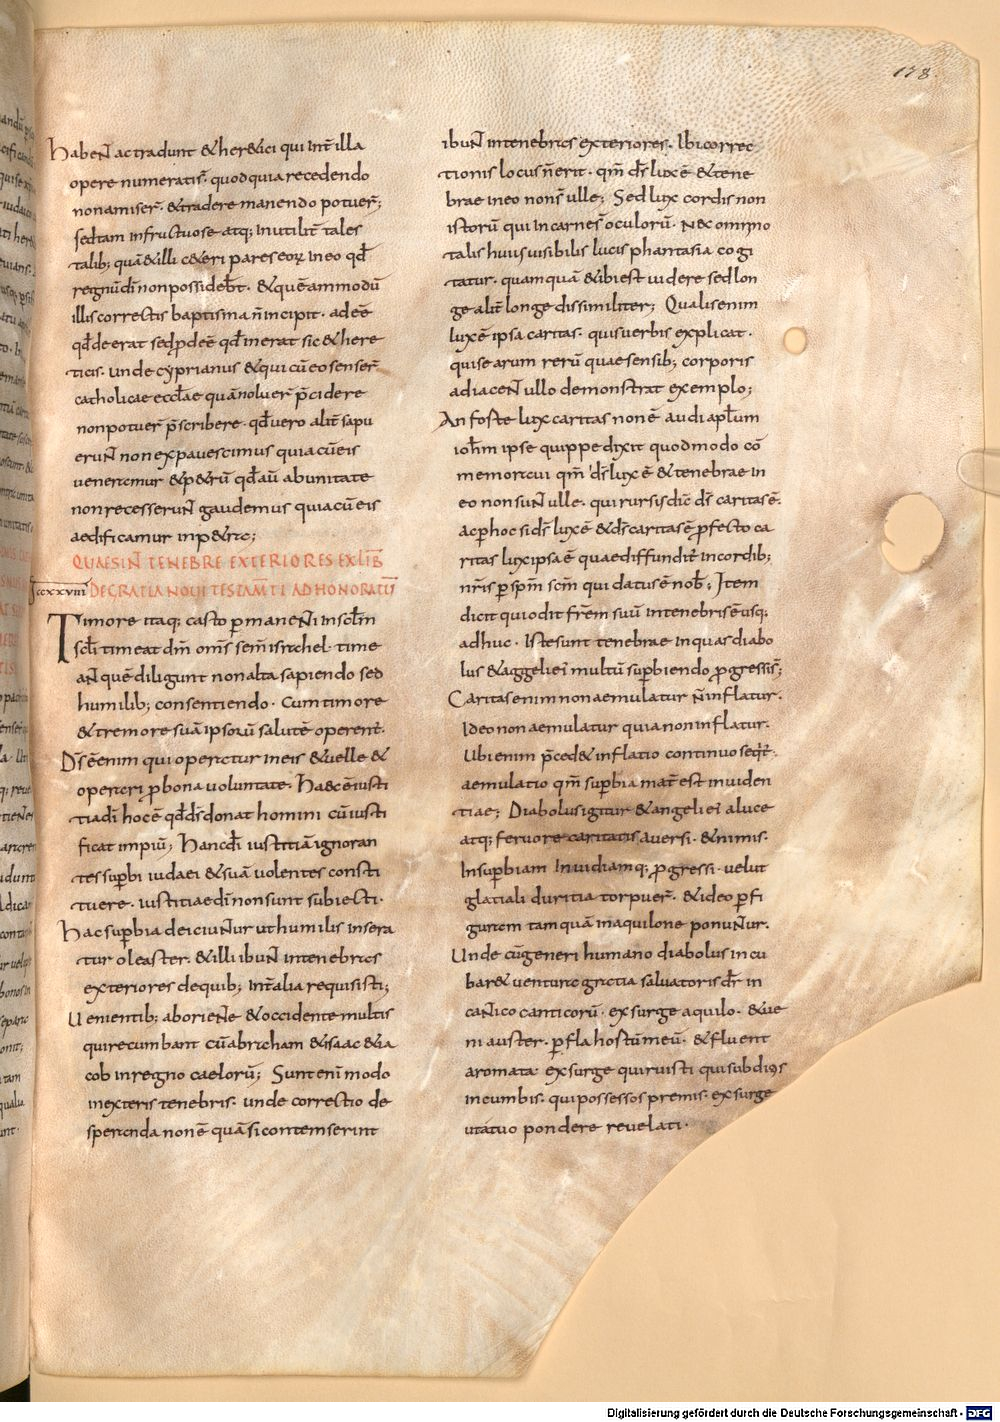 178.
habent ac tradunt & her&ici qui int̄ illa
opere numeratis̄· quod quia recedendo
non amiser̄· & tradere manendo potuer̄;
sed tam infructuose atq; inutilit̄ tales
talib; quā & illi c&eri pares eorꝫ in eo qđ
regnū dī non possideb̄t· & quē ammodū
illis correctis baptisma n̄ incipit· adeē
qđ deerat sed p̄deē qđ inerat sic & here
ticis· unde cyprianus & qui cū eo senser̄
catholicae ecclae quā noluer̄ p̄cidere
non potuer̄ p̄scribere· qđ uero alit̄ sapu
erunt non expauescimus quia cū eis
ueneramur & p&rū qđ aū ab unitate
non recesserunt gaudemus quia cū eis
aedificamur in p&ra;
QUAE SINT TENEBRE EXTERIORES EX LIB̄
CCXXVIII DE GRATIA NOUI TESTAM̄TI AD HONORATŪ
Timore itaq; casto p̄manenti in sclm̄
scłi timeat dm̄ om̄s sem̄ isrāhel· time
ant quē diligunt non alta sapiendo sed
humilib; consentiendo· Cum timore
& tremore suā ipsorū salutē operent̄·
D̄s ē enim qui operatur in eis & uelle &
operari p̄ bona uoluntate· Haec ē iusti
tia dī hoc ē qđ d̄s donat homini cū iusti
ficat impiū; Hanc dī iustitiā ignoran
tes sup̄bi iudaei & suā uolentes consti
tuere· iustitiae dī non sunt subiecti·
Hac sup̄bia deiciuntur ut humilis insera
tur oleaster· & illi ibunt in tenebras
exteriores de quib; int̄ alia requisisti;
Uenientib; ab oriente & occidente multis
qui recumbant cū abraham & isaac & ia
cob in regno caelorū; Sunt eni modo
in exteris tenebris· unde correctio de
speranda non ē quā si contemserint
ibunt in tenebras exteriores· Ibi correc
tionis locus n̄ erit· qm̄ d̄s lux ē & tene
brae in eo nons̄ ulle; Sed lux cordis non
istorū qui in carne s̄ oculorū· Nec omnino
talis huius uisibilis lucis phantasia cogi
tatur· quamquā & ibi est uidere sed lon
ge alit̄ longe dissimiliter; Qualis enim
lux ē ipsa caritas· quis uerbis explicat·
quis earum rerū quae sensib; corporis
adiacent ullo demonstrat exemplo;
An foste lux caritas non ē audi aplum
ioh̄m ipse quippe dixit quod modo cō
memoraui qm̄ d̄s lux ē & tenebrae in
eo non sunt ulle· qui rursis dic̄ d̄s caritas ē·
ac p̄ hoc si d̄s lux ē & d̄s caritas ē p̄fecto ca
ritas lux ipsa ē quae diffundit̄ in cordib;
nr̄is p̄ sp̄m scm̄ qui datus ē nob̄; Item
dicit qui odit fr̄em suū in tenebris ē usq;
adhuc· Iste sunt tenebrae in quas diabo
lus & aggeli ei multū sup̄biendo p̄gressis̄;
Caritas enim non aemulatur n̄ inflatur·
Ideo non aemulatur quia non inflatur·
Ubi enim p̄ced& inflatio continuo seqt̄·
aemulatio qm̄ sup̄bia mat̄ est inuiden
tiae; Diabolus igitur & angeli ei a luce
atq; feruore caritatis auersi· & nimis·
In sup̄biam Inuidiamq; p̄gressi· uelut
glatiali duritia torpuer̄· & ideo p̄ fi
guram tamquā in aquilone ponuntur·
Unde cū generi humano diabolus incu
bar& uentura gratia saluatoris dr̄ in
cantico canticorū· exsurge aquilo· & ue
ni auster· p̄fla hostū meū· & fluent
aromata· exsurge qui ruisti qui subditis
incumbis· qui possessos premis· exsurge
ut a tuo pondere reuelati·
Digitalisierung gefördert durch die Deutsche Forschungsgemeinschaft - DFG